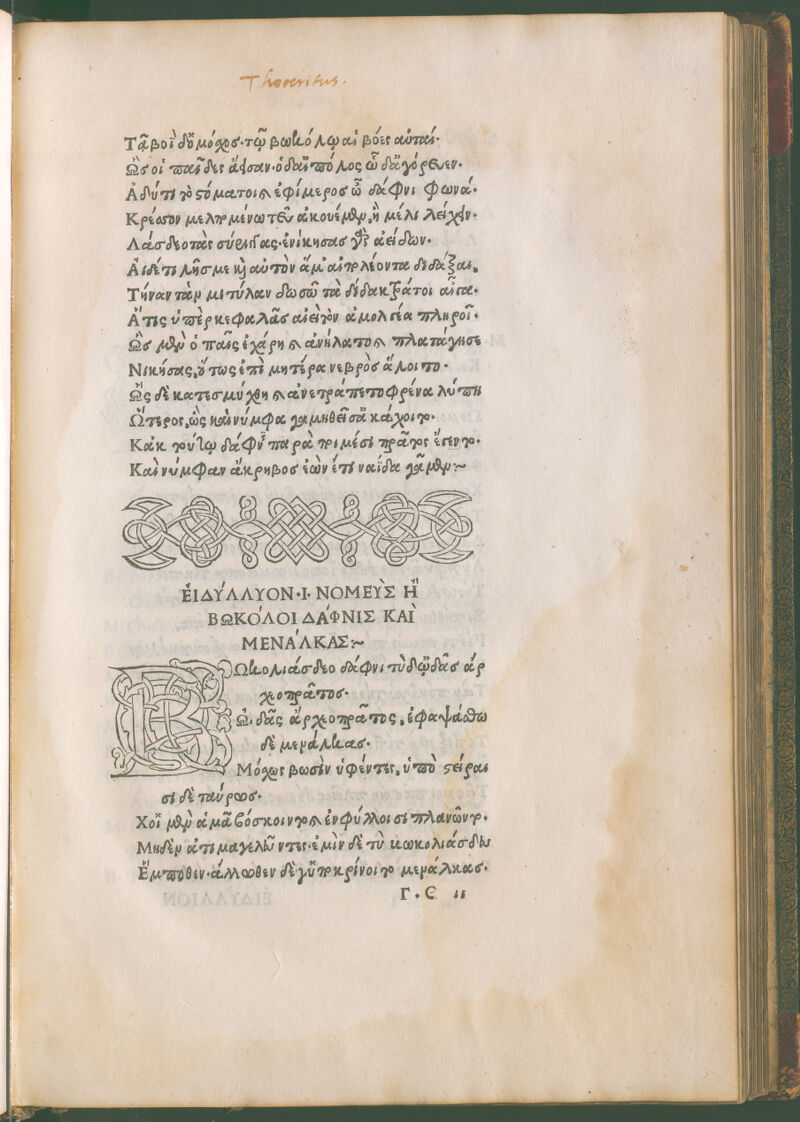 Theocritus.
Τᾷ βοῒ δ' ὁ μόσχος· τῷ βωκόλῳ αἱ βόες αὐταί·
Ὣς οἱ παῖδες ἄεισαν· ὁ δ' αἰπόλος ὧδ' ἀγόρευεν·
Ἁδύ τι τὸ στόμα τοι καὶ ἐφίμερος ὦ δάφνι φωνά·
Κρέσσον μελπομένω τεῦ ἀκουέμεν, ἢ μέλι λείχειν·
Λάσδεο τὰς σύριγγας· ἐνίκησας γὰρ ἀείδων·
Αἰ δέ τι λῇς με καὶ αὐτὸν ἅμ' αἰπολέοντα διδάξαι,
Τήναν τὰν μιτύλαν δωσῶ τὰ δίδακτρά τοι αἶγα·
Ἅτις ὑπὲρ κεφαλᾶς αἰεὶ τὸν ἀμολγέα πληροῖ·
Ὣς μὲν ὁ παῖς ἐχάρη καὶ ἀνήλατο καὶ πλατάγησε
Νικήσας, οὕτως ἐπὶ μητέρα νεβρὸς ἅλοιτο·
Ὣς δὲ κατεσμύχθη καὶ ἀνετράπετο φρένα λύπῃ
Ὥτερος, ὡς καὶ νύμφα γαμηθεῖσ' ἀκάχοιτο·
Κἀκ τούτω δάφνις παρὰ ποιμέσι πρᾶτος ἔγεντο·
Καὶ νύμφαν ἄκρηβος ἐὼν ἔτι ναΐδα γᾶμεν:~
ἘΙΔΎΛΛΥΟΝ·Ι· ΝΟΜΕῪΣ Ἢ
ΒΩΚΌΛΟΙ ΔΆΦΝΙΣ ΚΑῚ
ΜΕΝΆΛΚΑΣ:~
ΒΩκολιάσδεο δάφνι τὺ δ' ᾠδᾶς ἄρ
χεο πρᾶτος·
Ὠιδᾶς ἄρχεο πρᾶτος, ἐφαψάσθω
δὲ μενάλκας·
Μόσχως βωσὶν ὑφέντες, ὑπὸ στείραι
σι δὲ ταύρως·
Χοἲ μὲν ἁμᾶ βόσκοιντο καὶ ἐν φύλλοισι πλανῶντο·
Μηδὲν ἀτιμαγελεῦντες· ἐμὶν δὲ τὺ βωκολιάσδευ
Ἔμποθεν· ἄλλωθεν δὲ ποτικρίνοιτο μενάλκας·
Γ·Θ ιι